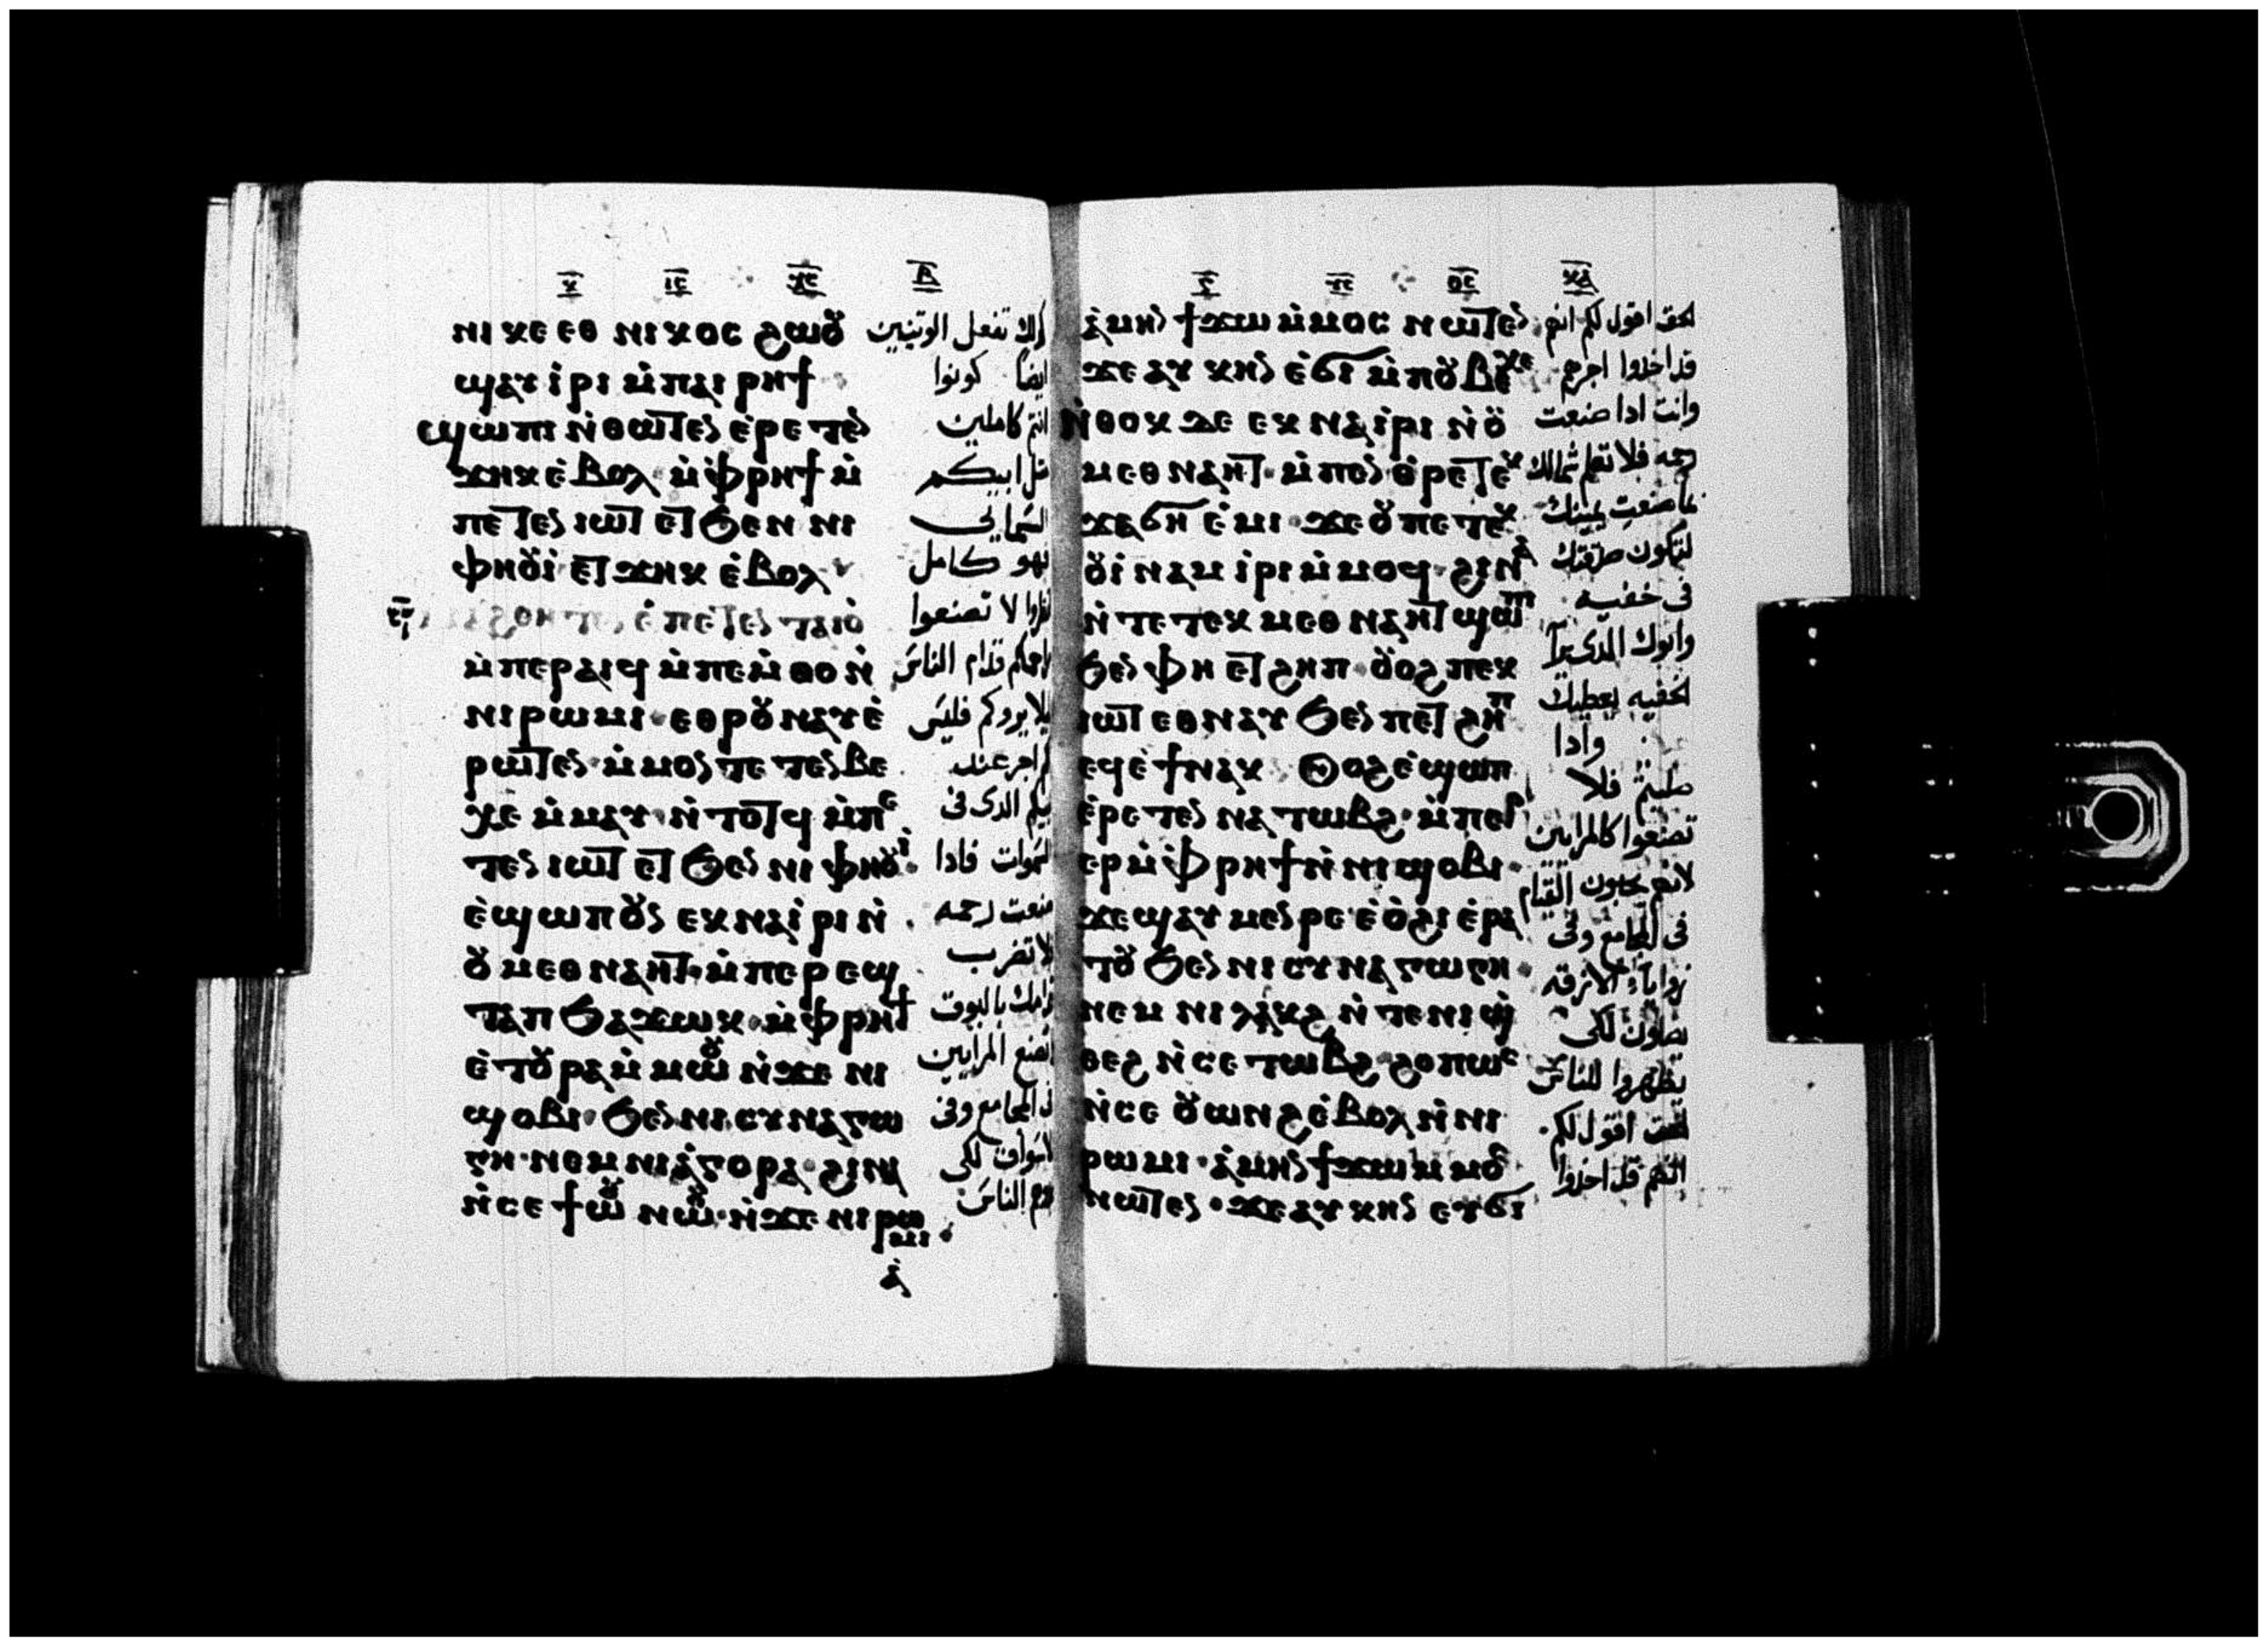 ⲛⲓⲕⲉⲉⲑⲛⲓⲕⲟⲥ ϩⲱⲟⲩ
ϣⲁⲩⲓⲣⲓ ⲙ̀ⲡⲁⲓⲣⲏϯ
ϣⲱⲡⲓ ⲛ̀ⲑⲱⲧⲉⲛ ⲉ̀ⲣⲉⲧⲉⲛ
ϫⲏⲕ ⲉ̀ⲃⲟⲗ ⲙ̀ⲫⲣⲏϯ ⲙ̀
ⲡⲉⲧⲉⲛⲓⲱⲧ ⲉⲧϧⲉⲛ ⲛⲓ
ⲫⲏⲟⲩⲓ̀ ⲉⲧϫⲏⲕ ⲉ̀ⲃⲟⲗ
ⲉ̀ⲡⲉⲧⲉⲛⲧⲁⲓⲟ̀
ⲙ̀ⲡⲉⲣⲁⲓϥ ⲙ̀ⲡⲉⲙ̀ⲑⲟ ⲛ̀
ⲛⲓⲣⲱⲙⲓ ⲉⲑⲣⲟⲩⲛⲁⲩ ⲉ̀
ⲣⲱⲧⲉⲛ ⲙ̀ⲙⲟⲛ ⲧⲉⲧⲉⲛⲃⲉ
ⲭⲉ ⲙ̀ⲙⲁⲩ ⲛ̀ⲧⲟⲧϥ ⲙ̀ⲡⲉ
ⲧⲉⲛⲓⲱⲧ ⲉⲧϧⲉⲛ ⲛⲓⲫⲏⲟⲩⲓ
ⲉ̀ϣⲱⲡ ⲟⲩⲛ ⲉⲕⲛⲁⲓ̀ⲣⲓ ⲛ̀
ⲟⲩⲙⲉⲑⲛⲁⲏⲧ ⲙ̀ⲡⲉⲣⲉϣ
ⲧⲁⲡ ϧⲁϫⲱⲕ ⲙ̀ⲫⲣⲏϯ
ⲉ̀ⲧⲟⲩⲣⲁ ⲙ̀ⲙⲱⲟⲩ ⲛ̀ϫⲉ ⲛⲓ
ϣⲟⲃⲓ ϧⲉⲛ ⲛⲓⲥⲩⲛⲁⲅⲱ
ⲅⲏ ⲛⲉⲙ ⲛⲓⲁ̀ⲅⲟⲣⲁ ϩⲓⲛⲁ
ⲛ̀ⲥⲉϯⲱⲟⲩ ⲛⲱⲟⲩ ⲛ̀ϫⲉ ⲛⲓⲣⲱ
ⲙⲓ
ⲁ̀
تفعل الوتنيين
ايضا كونوا
انتم كاملين
ابيكم
السمايي
فهو كامل
لا تصنعوا
قدام الناس
فليس
اجر عند
الدى فى
السموات فادا
صنعت رحمه
لا تضرب
بالبوق
تصنع المرايين
المجامع وفى
الاسواق لكى
الناس
ⲁ̀ⲙⲏⲛ ϯϫⲱ ⲙ̀ⲙⲟⲥ ⲛⲱⲧⲉⲛ
ϫⲉ ⲁⲩⲕⲏⲛ ⲉ̀ϭⲓ ⲙ̀ⲡⲟⲩⲃⲉⲭⲉ
ⲛ̀ⲑⲟⲕ ⲇⲉ ⲉⲕⲛⲁⲓ̀ⲣⲓ ⲛ̀ⲟⲩ
ⲙⲉⲑⲛⲁⲏⲧ ⲙ̀ⲡⲉⲛⲑⲣⲉⲧⲉⲕ
ϫⲁϭⲏ ⲉ̀ⲙⲓ ϫⲉ ⲟⲩ ⲡⲉⲧⲉⲕ
ⲟⲩⲓⲛⲁⲙ ⲓⲣⲓ ⲙ̀ⲙⲟϥ ϩⲓⲛⲁ
ⲛ̀ⲧⲉ ⲧⲉⲕⲙⲉⲑⲛⲁⲏⲧ ϣⲱⲡⲓ
ϧⲉⲛ ⲫⲏ ⲉⲧϩⲏⲡ ⲟⲩⲟϩ ⲡⲉⲕ
ⲓⲱⲧ ⲉⲑⲛⲁⲩ ϧⲉⲛ ⲡⲉⲧϩⲏⲡ
ⲉϥⲉ̀ϯ ⲛⲁⲕ ⲟⲩⲟϩ ⲉ̀ϣⲱⲡ
ⲉ̀ⲣⲉⲧⲉⲛⲛⲁⲧⲱⲃϩ ⲙ̀ⲡⲉⲣ
ⲉⲣ ⲙ̀ⲫⲣⲏϯ ⲛ̀ⲛⲓϣⲟⲃⲓ
ϫⲉ ϣⲁⲩⲙⲉⲛⲣⲉ ⲉ̀ⲟ̀ϩⲓ ⲉ̀ⲣⲁ
ⲧⲟⲩ ϧⲉⲛ ⲛⲓⲥⲩⲛⲁⲅⲱⲅⲏ
ⲛⲉⲙ ⲛⲓⲗⲁⲕϩ ⲛ̀ⲧⲉ ⲛⲓϣ̀
ⲑⲉϩ ⲛ̀ⲥⲉⲧⲱⲃϩ ϩⲟⲡⲱⲥ
ⲛ̀ⲥⲉⲟⲩⲱⲛϩ ⲉ̀ⲃⲟⲗ ⲛ̀ⲛⲓ
ⲣⲱⲙⲓ ⲁ̀ⲙⲏⲛ ϯϫⲱ ⲙⲙⲟⲥ
ⲛⲱⲧⲉⲛ ϫⲉ ⲁⲩⲕⲏⲛ ⲉⲩϭⲓ
الحق اقول لكم انهم
قد اخدوا اجرهم
وانت ادا صنعت
رحمه فلا تعلم شمالك
ما صنعت يمينك
لتكون صدقتك
فى خفيه
وابوك الدى يرا
الخفيه يعطيك
وادا
صليتم فلا
تصنعوا كالمرايين
لانهم يحبون القيام
فى المجامع وفى
زوايا الازقه
يصلون لكى
يظهروا للناس
الحق اقول لكم
انهم قد اخدوا